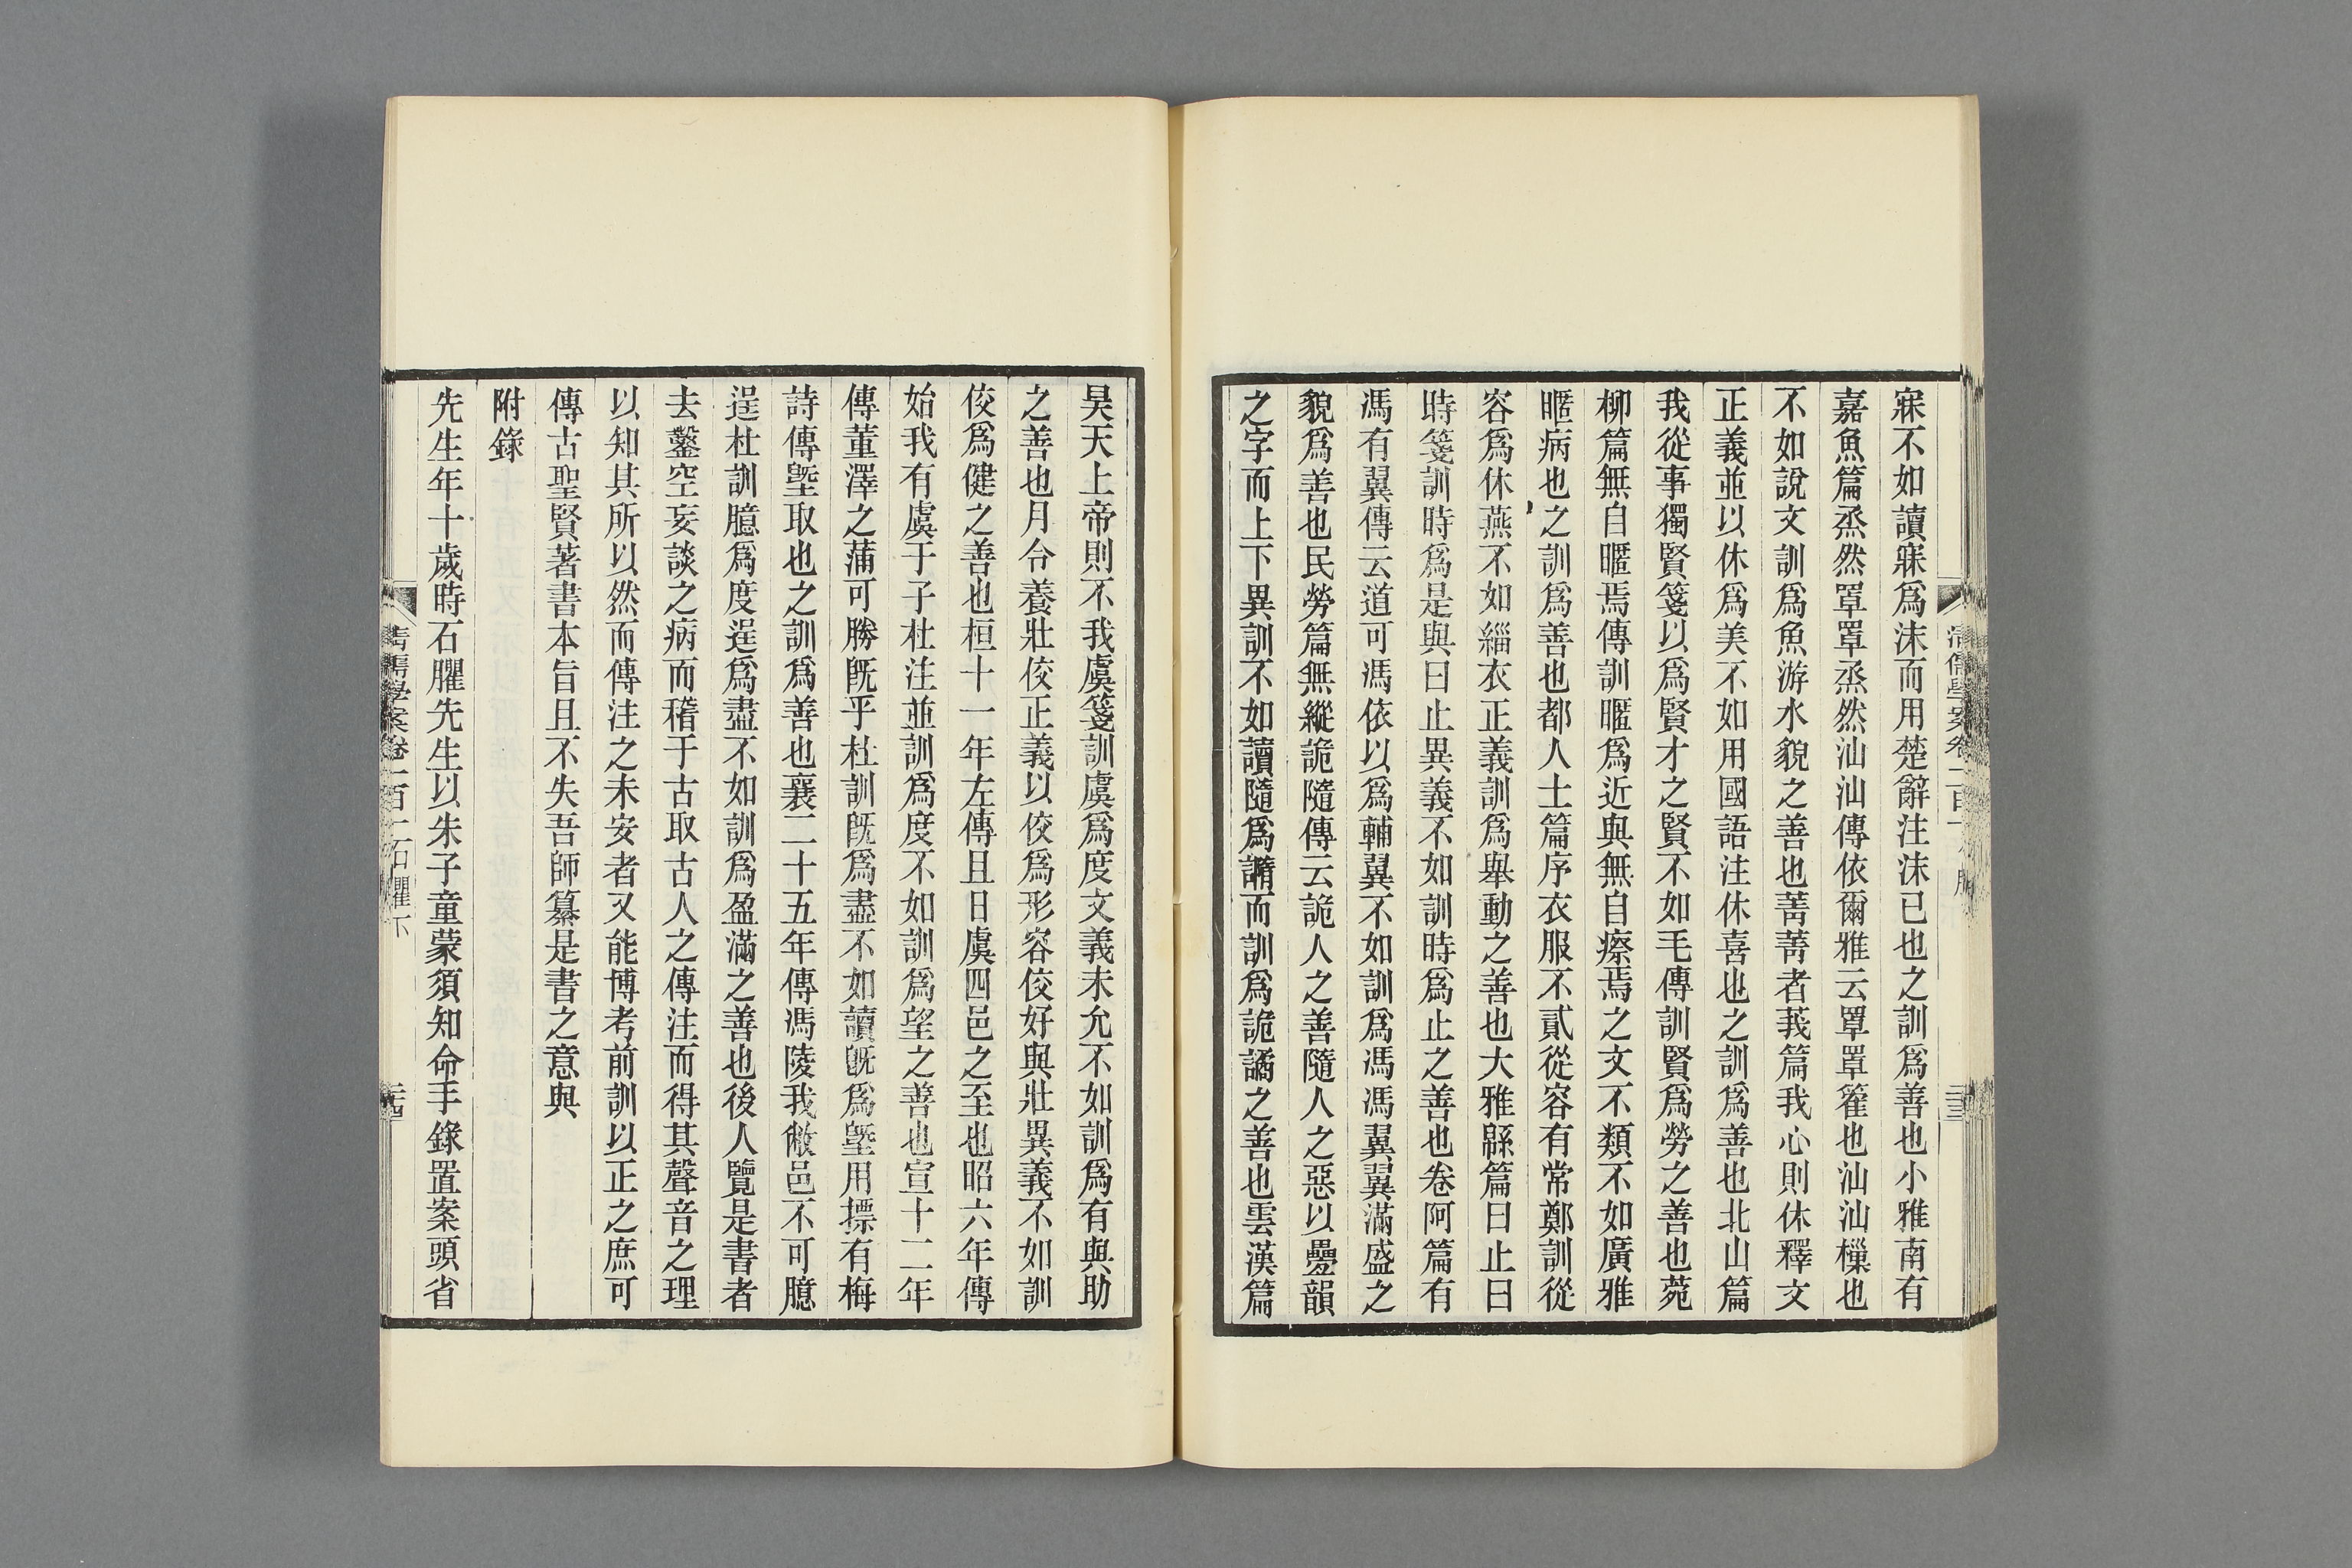 寐不如讀寐爲沬而用楚辭注沬已也之訓爲善也小雅南有
嘉魚篇烝然罩罩烝然汕汕傳依爾雅云罩罩篧也汕汕樔也
不如說文訓爲魚游水貌之善也菁菁者莪篇我心則休釋文
正義並以休爲美不如用國語注休喜也之訓爲善也北山篇
我從事獨賢箋以爲賢才之賢不如毛傳訓賢爲勞之善也菀
柳篇無自暱焉傳訓暱爲近與無自瘵焉之文不類不如廣雅
暱病也之訓爲善也都人士篇序衣服不貳從容有常鄭訓從
容爲休燕不如緇衣正義訓爲舉動之善也大雅緜篇曰止曰
時箋訓時爲是與曰止異義不如訓時爲止之善也卷阿篇有
馮有翼傳云道可馮依以爲輔翼不如訓爲馮馮翼翼滿盛之
貌爲善也民勞篇無縱詭隨傳云詭人之善隨人之惡以疊韻
之字而上下異訓不如讀隨爲譎而訓爲詭譎之善也雲漢篇
昊天上帝則不我虞箋訓虞爲度文義未允不如訓爲有與助
之善也月令養壯佼正義以佼爲形容佼好與壯異義不如訓
佼爲健之善也桓十一年左傳且日虞四邑之至也昭六年傳
始我有虞于子杜注並訓爲度不如訓爲望之善也宣十二年
傳董澤之蒲可勝旣乎杜訓旣爲盡不如讀旣爲塈用摽有梅
詩傳塈取也之訓爲善也襄二十五年傳馮陵我敝邑不可億
逞杜訓億爲度逞爲盡不如訓爲盈滿之善也後人覽是書者
去鑿空妄談之病而稽于古取古人之傳注而得其聲音之理
以知其所以然而傳注之未安者又能博考前訓以正之庶可
傳古聖賢著書本旨且不失吾師纂是書之意與
附錄
先生年十歲時石臞先生以朱子童蒙須知命手錄置案頭省
清儒學案卷一百一石臞下